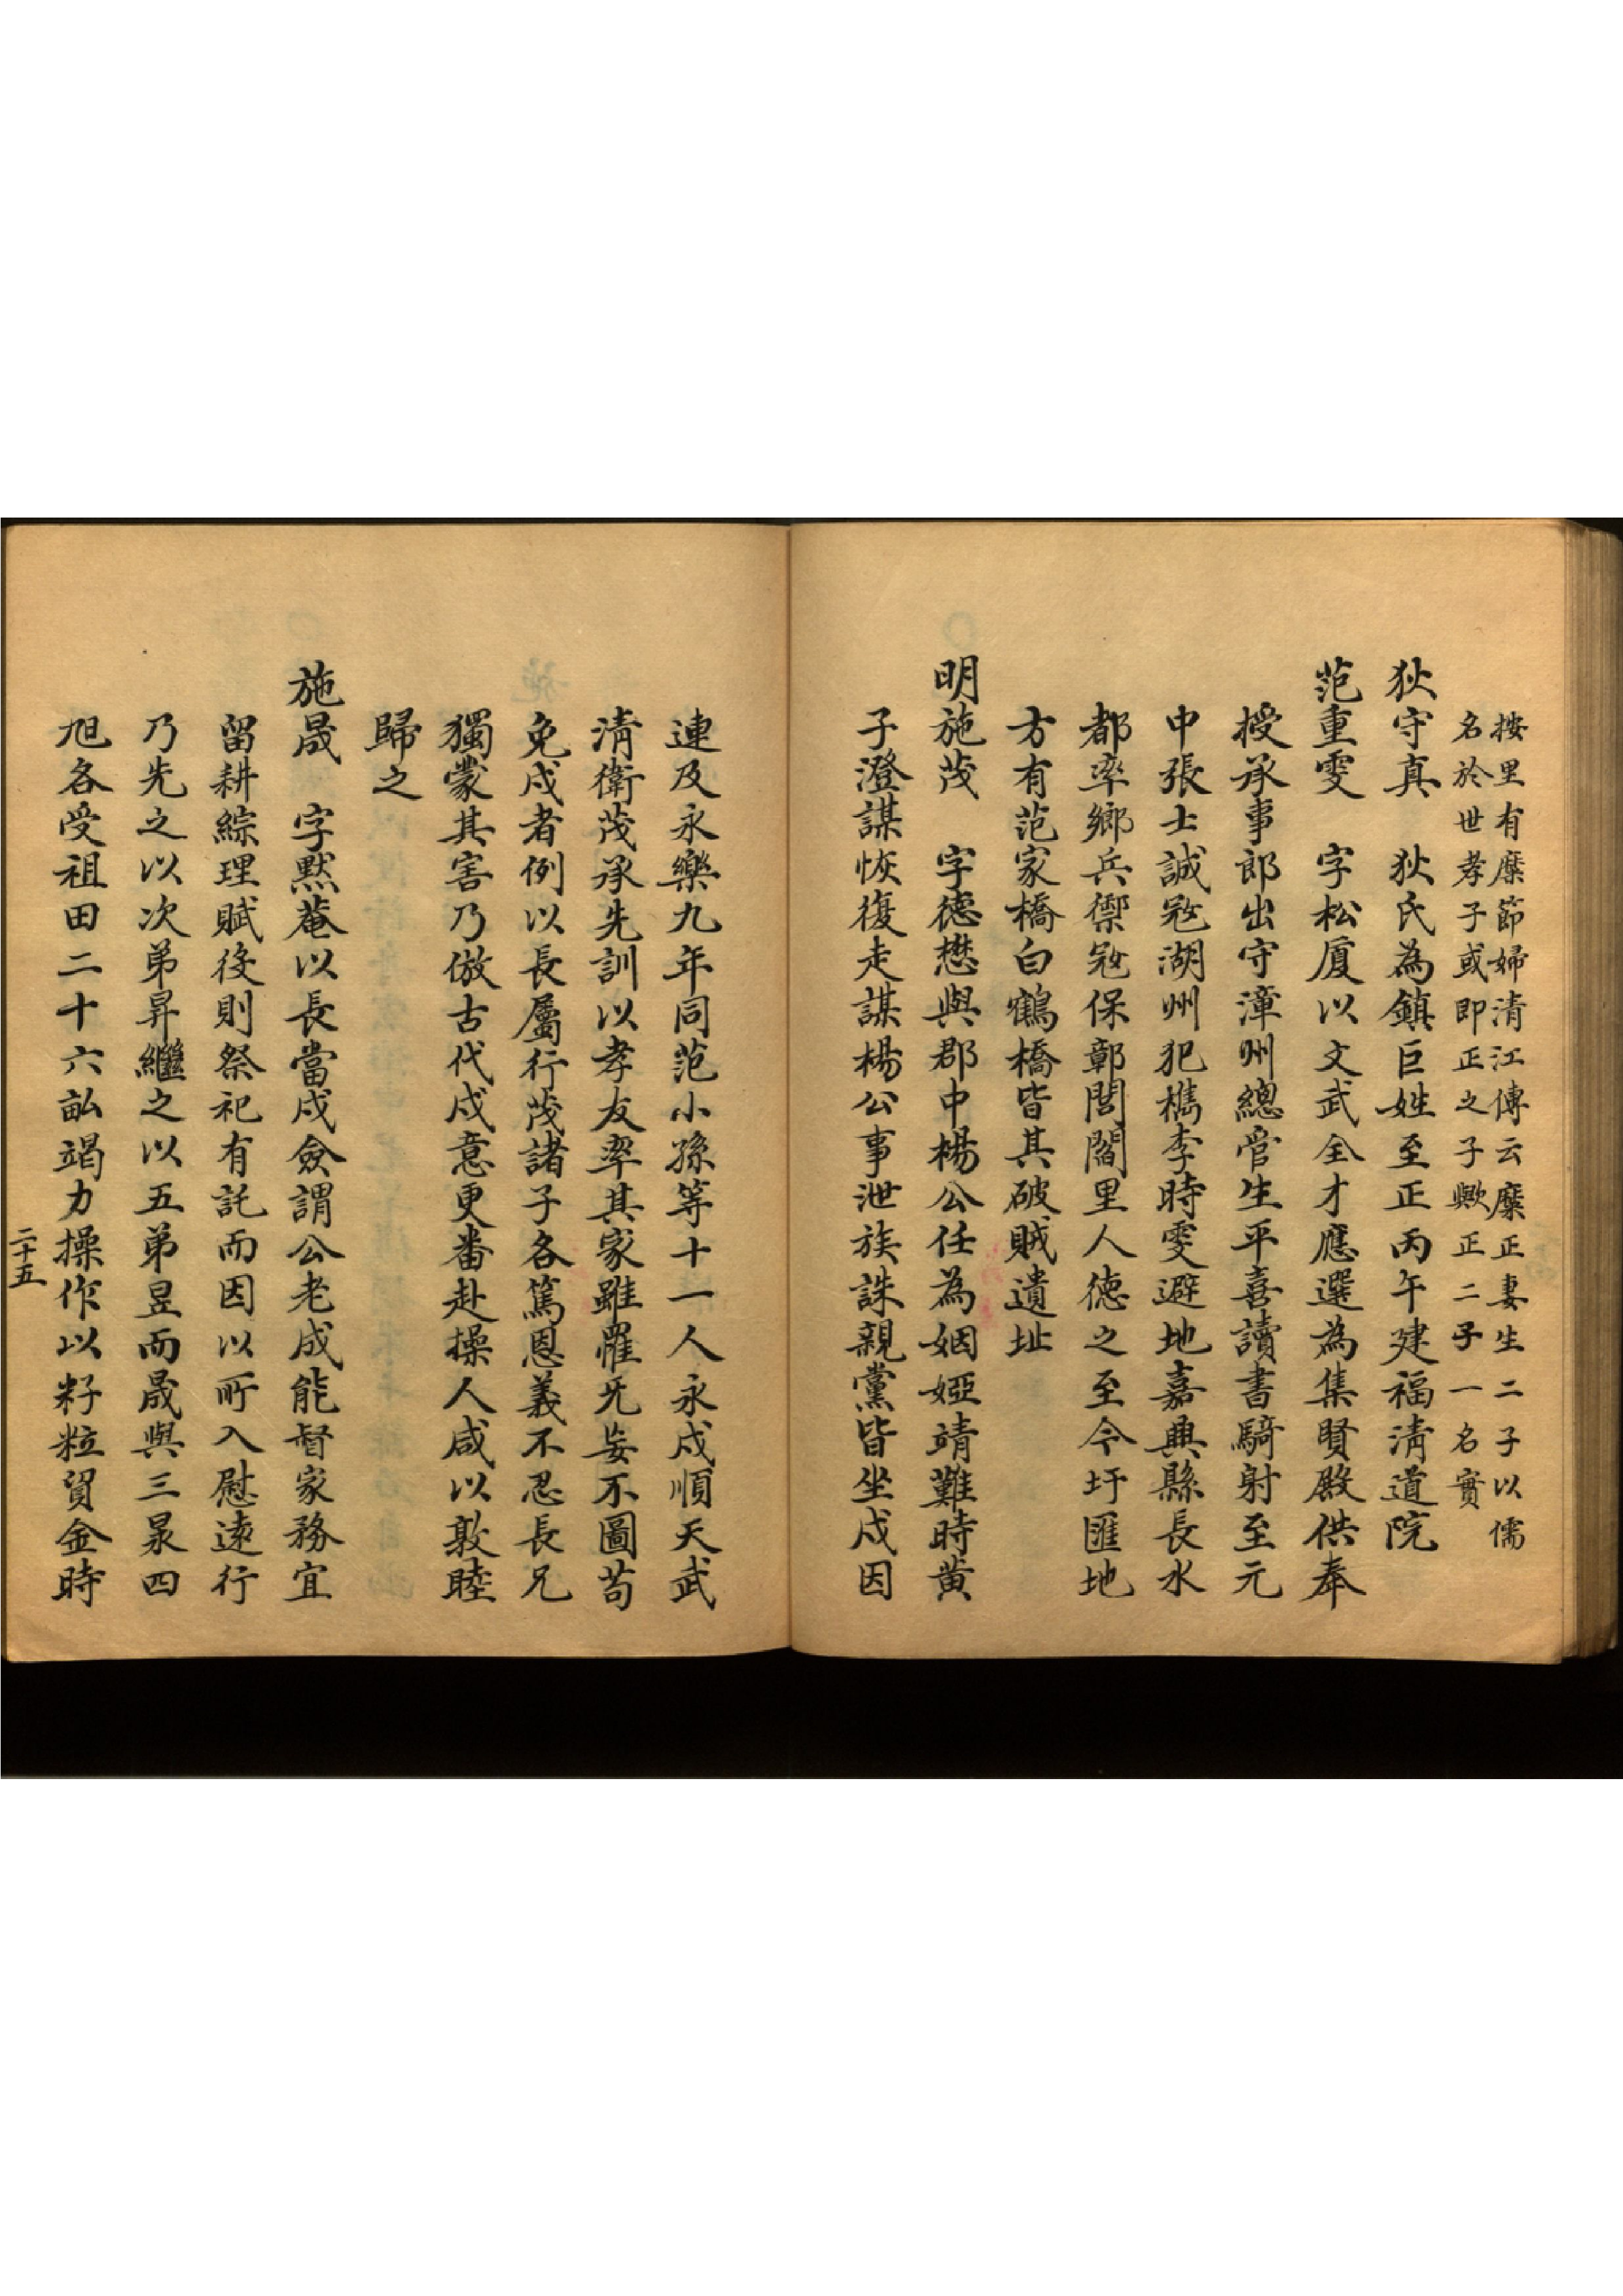 按里有糜節婦清江傳云糜正妻生二子以儒
名於世孝子或即正之子歟正二子一名實
狄守真　狄氏為鎮巨姓至正丙午建福清道院
范重雯　字松廈以文武全才應選為集賢殿供奉
授承事郎出守漳州總管生平喜讀書騎射至元
中張士誠寇湖州犯檇李時雯避地嘉興縣長水
都率鄉兵禦寇保鄣閭閻里人德之至今圩匯地
方有范家橋白鶴橋皆其破賊遺址
明施茂　字德懋與郡中楊公任為姻婭靖難時黄
子澄謀恢復走謀楊公事泄族誅親黨皆坐戍因
連及永樂九年同范小孫等十一人永戍順天武
清衛茂承先訓以孝友率其家雖罹旡妄不圖苟
免戍者例以長屬行茂諸子各篤恩義不忍長兄
獨蒙其害乃倣古代戍意更番赴操人咸以敦睦
歸之
施晟　字黙菴以長當戍僉謂公老成能督家務宜
留耕綜理賦役則祭祀有託而因以所入慰遠行
乃先之以次弟昇繼之以五弟昱而晟與三泉四
旭各受祖田二十六畝竭力操作以籽粒貿金時
二十五